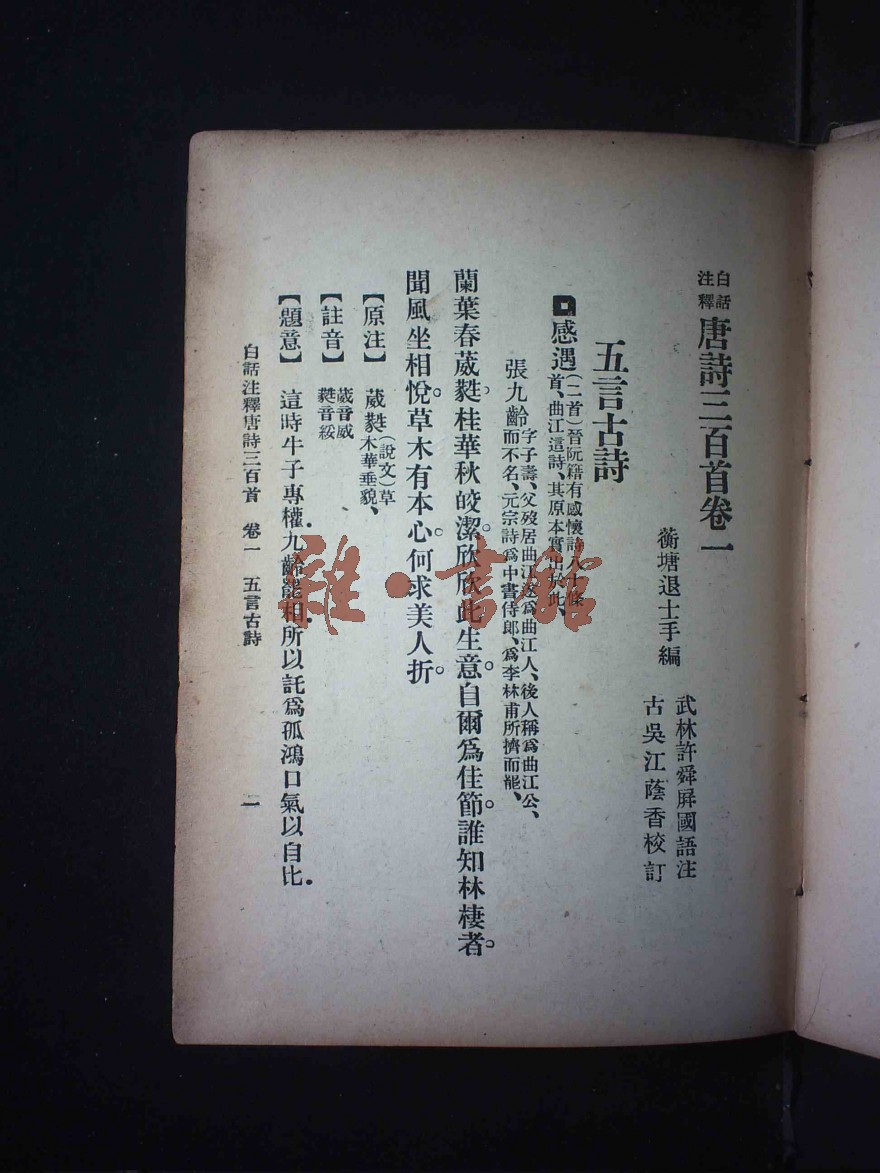 白話注釋唐詩三百首卷一
衡塘退士手編
武林許舜屏國語注
古吳江蔭香校訂
五言古詩
感遇(二首)晉阮籍有感懷詩八十餘首、曲江這詩、其原本實出於此、
張九齡字子壽、父歿居曲江遂爲曲江人、後人稱爲曲江公、而不名、元宗詩爲中書侍郎、爲李林甫所擠而罷、
蘭葉春葳蕤。桂華秋皎潔。欣欣此生意。自爾爲佳節。誰知林棲者。
聞風坐相悅。草木有本心。何求美人折。
【原注】葳蕤(說文)草木華垂貌、
【註音】葳音威蕤音綏
【題意】這時牛子專權.九齡罷相.所以託爲孤鴻口氣以自比.
白話注釋唐詩三百首 卷一 五言古詩 一
雜·書館